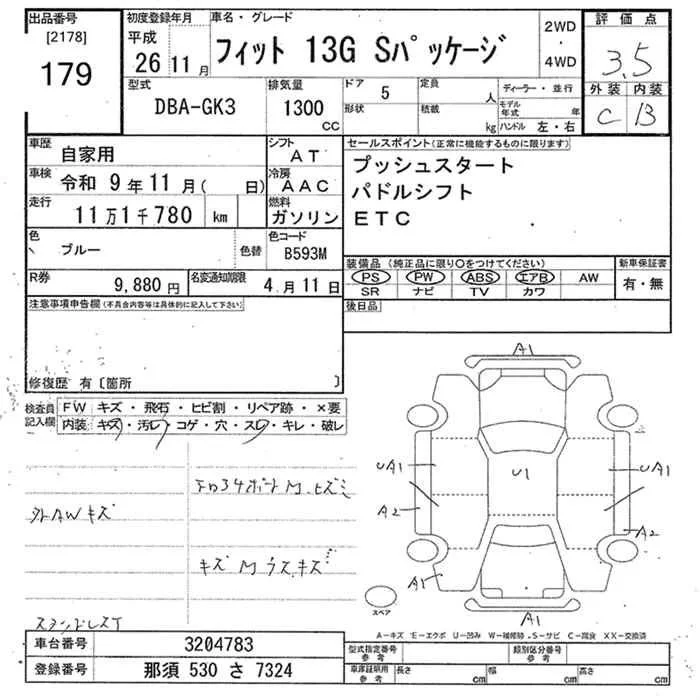 出品番号
[2178]
179
初度登録年月
平成
26 11 月
車名・グレード
フィット 13G Sパッケージ
2WD
・
4WD
評価点
3.5
外装 内装
C B
型式
DBA-GK3
排気量
1300
CC
ドア 5
形状
定員 人
積載 kg
ディーラー・並行
モデル年式 年
ハンドル 左・右
車歴 自家用
車検 令和 9年 11月( 日)
走行 11万1千780 km
シフト AT
冷房 AAC
燃料 ガソリン
色 ブルー 色替
色コード B593M
R券 9,880円
名変通知期限 4月11日
セールスポイント(正常に機能するものに限ります)
プッシュスタート
パドルシフト
ETC
装備品(純正品に限り○をつけてください)
PS PW ABS エアB AW
SR ナビ TV カワ
新車保証書
有・無
後日品
注意事項申告欄(不具合内容等は具体的に記入して下さい)
修復歴 有〔箇所 〕
検査員記入欄
FW キズ・飛石・ヒビ割・リペア跡・×要
内装 キズ・汚レ・コゲ・穴・スレ・キレ・破レ
外AWキズ
キズ M ウス.キズ
スタッドレスT
A1
UA1
U1
UA1
A2
A2
A1
A1
スペア
A-キズ E-エクボ U-凹み W-補修跡 S-サビ C-腐食 XX-交換済
車台番号 3204783
登録番号 那須 530 さ 7324
型式指定番号 参考
類別区分番号 参考
車庫証明用 参考
長さ cm
幅 cm
高さ cm